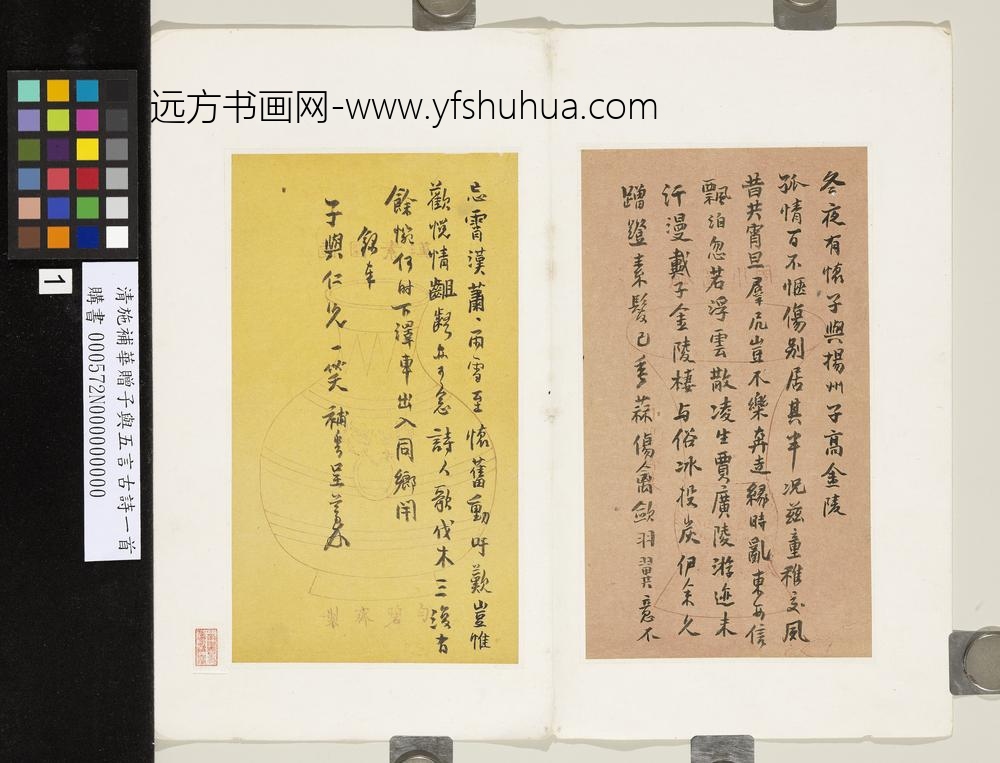 远方书画网-www.yfshuhua.com
冬夜有懷子與揚州子高金陵
孤情百不愜傷別居其半况茲童稚交風
昔共宵旦羣居豈不樂奔走緣時亂東西信
飄泊忽若浮雲散凌生賈廣陵游迹未
汗漫戴子金陵棲与俗冰投炭伊余久
蹭蹬素髮已垂蒜傷禽斂羽翼意不
忘霄漢蕭〻雨雪至懷舊動吁歎豈惟
歡悅情齟齬亦可念詩人歌伐木三復有
餘惋何時下澤車出入同鄉閈
錄奉
子與仁兄一笑 補華呈藁
清施補華贈子與五言古詩一首
購書 000572N000000000
1